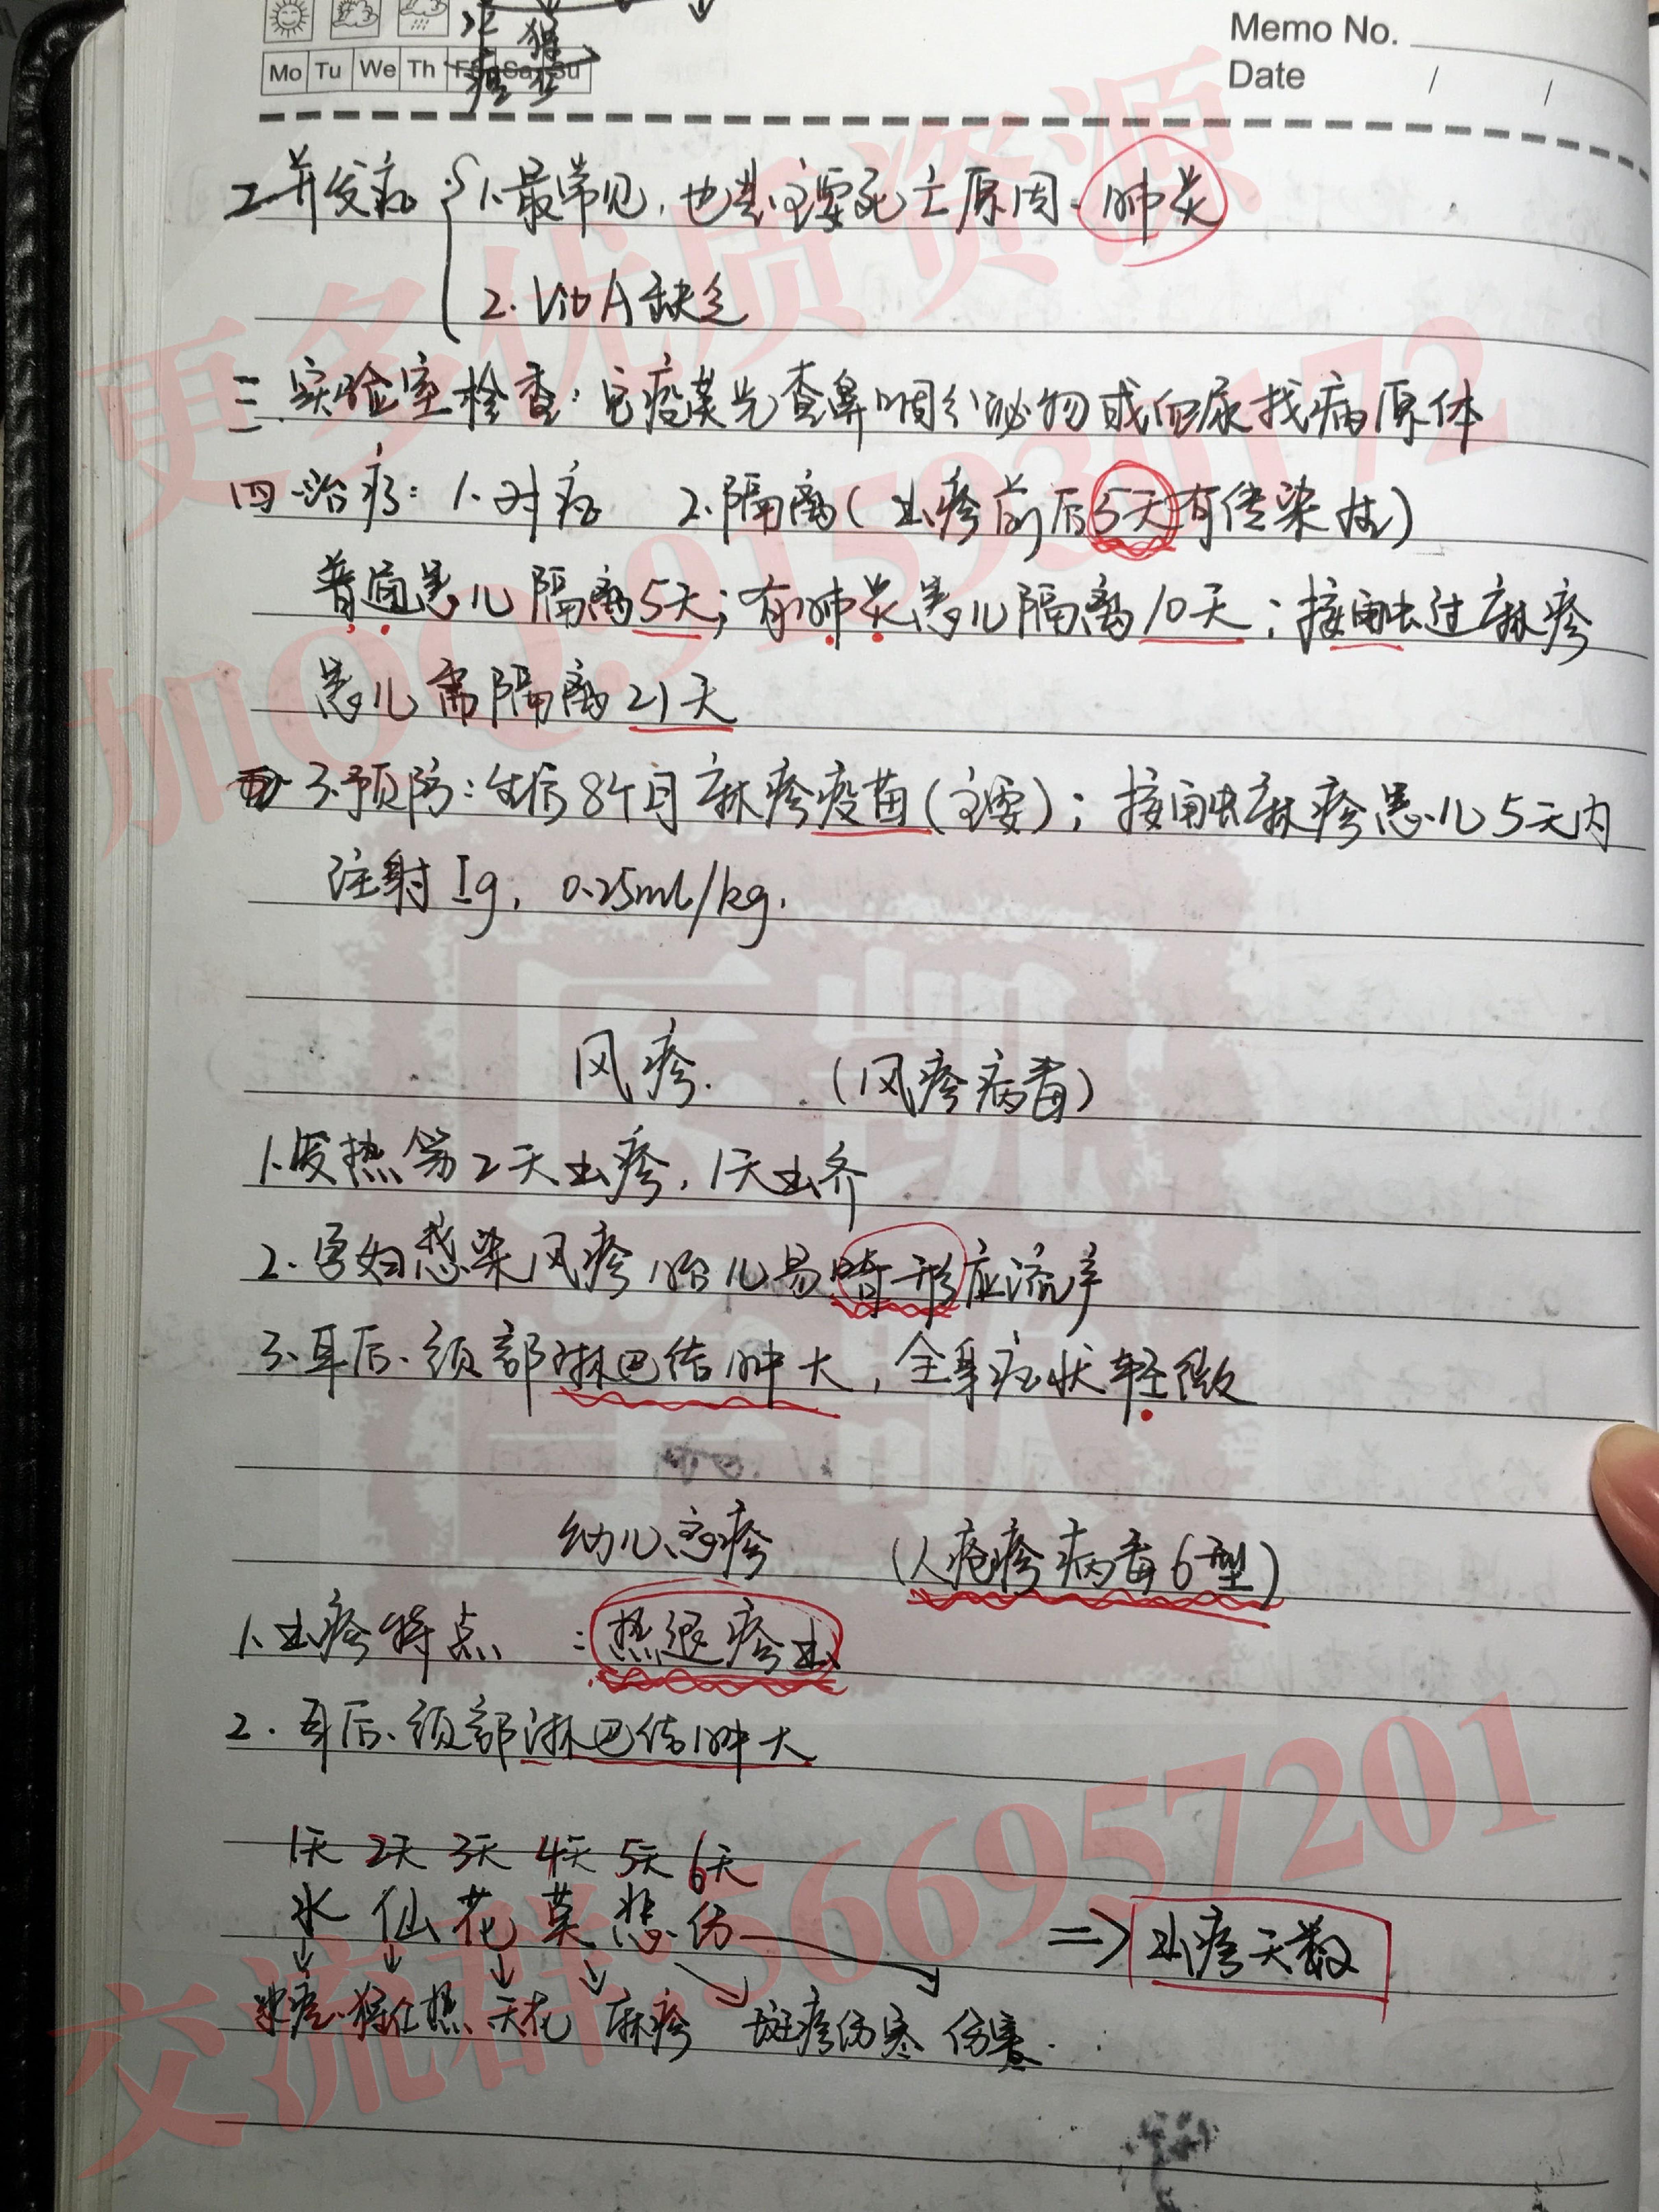 Memo No.
Mo Tu We Th Fr Sa Su
Date / /
二.并发病 1.最常见,也是主要死亡原因.肺炎
2. Vit A缺乏
三.实验室检查:免疫荧光查鼻咽分泌物或血尿找病原体
四.治疗:1.对症 2.隔离(出疹前后5天有传染性)
普通患儿隔离5天;有肺炎患儿隔离10天;接触过麻疹
患儿需隔离21天
3.预防:生后8个月麻疹疫苗(主要);接触麻疹患儿5天内
注射Ig, 0.25ml/kg.
风疹. (风疹病毒)
1.发热第2天出疹,1天出齐
2.孕妇感染风疹胎儿易畸形应流产
3.耳后、颈部淋巴结肿大,全身症状轻微
幼儿急疹 (人疱疹病毒6型)
1.出疹特点:热退疹出
2.耳后、颈部淋巴结肿大
1天 2天 3天 4天 5天 6天
水 仙 花 莫 悲 伤 => 出疹天数
水痘 猩红热 天花 麻疹 斑疹伤寒 伤寒.
更多优质资源
加QQ:915930172
医凯
交流群:566957201